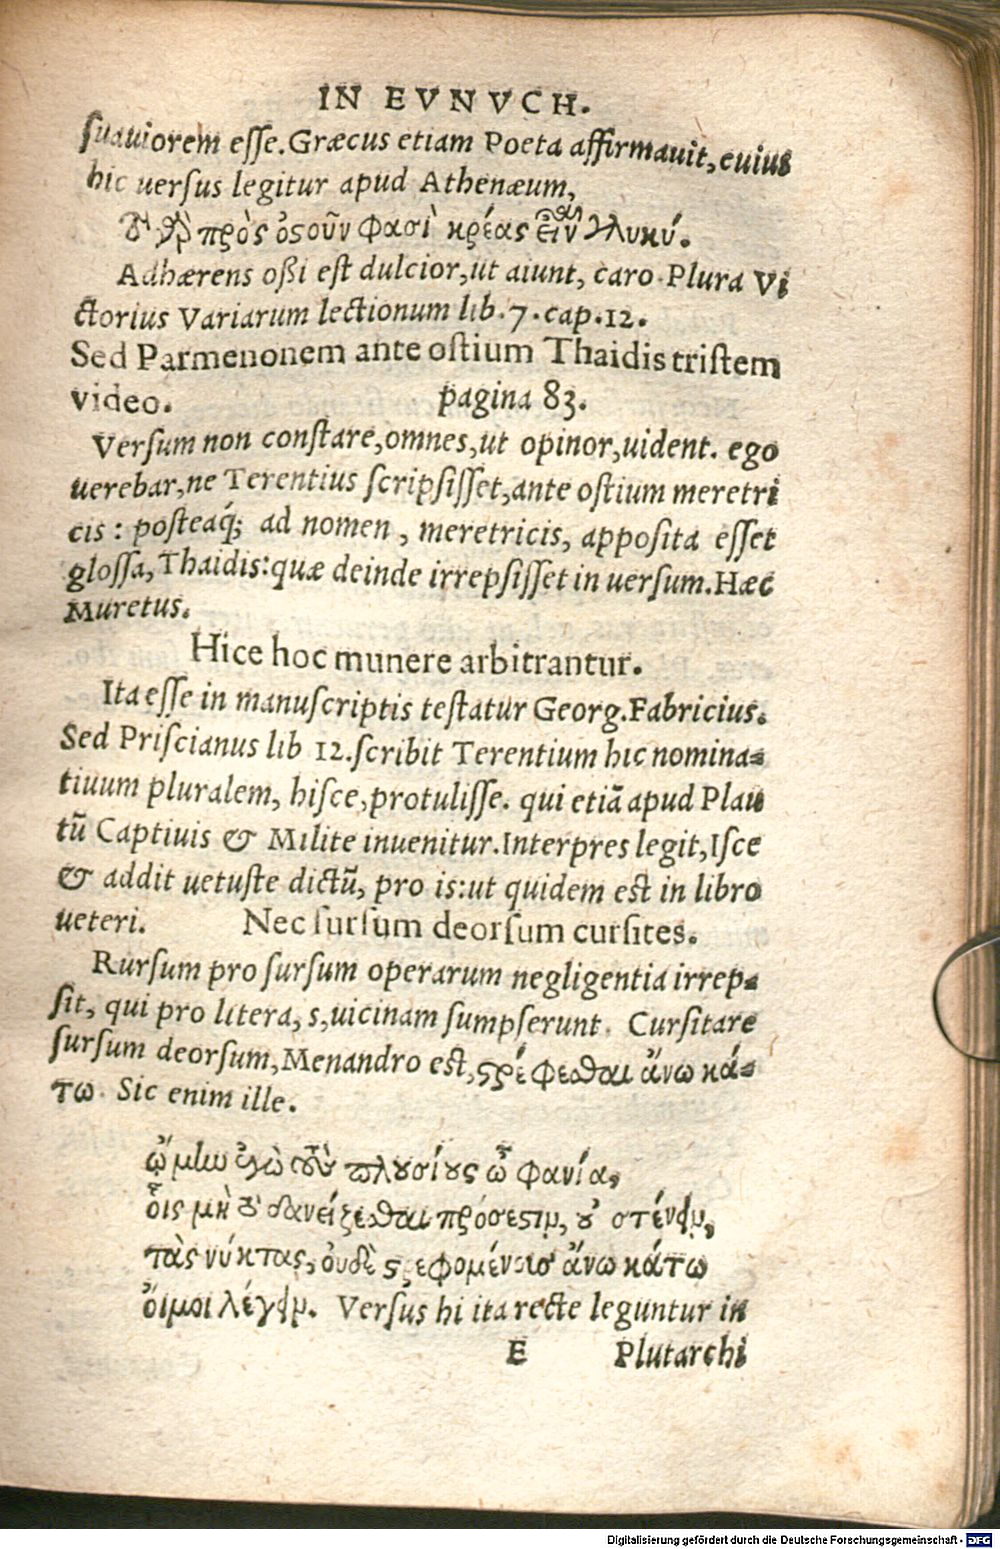 IN EVNVCH.
suauiorem esse. Græcus etiam Poeta affirmauit, cuius
hic uersus legitur apud Athenæum,
πρὸς ὀστοῦν φασὶ κρέας εἶναι γλυκύ.
Adhærens oßi est dulcior, ut aiunt, caro. Plura Vi
ctorius Variarum lectionum lib. 7. cap. 12.
Sed Parmenonem ante ostium Thaidis tristem
video. pagina 83.
Versum non constare, omnes, ut opinor, uident. ego
uerebar, ne Terentius scripsisset, ante ostium meretri
cis: posteaq́; ad nomen, meretricis, apposita esset
glossa, Thaidis: quæ deinde irrepsisset in uersum. Hæc
Muretus.
Hice hoc munere arbitrantur.
Ita esse in manuscriptis testatur Georg. Fabricius.
Sed Priscianus lib 12. scribit Terentium hic nomina-
tiuum pluralem, hisce, protulisse. qui etiā apud Plau
tū Captiuis & Milite inuenitur. Interpres legit, Isce
& addit uetuste dictū, pro is: ut quidem est in libro
ueteri. Nec sursum deorsum cursites.
Rursum pro sursum operarum negligentia irrep-
sit, qui pro litera, s, uicinam sumpserunt. Cursitare
sursum deorsum, Menandro est, στρέφεσθαι ἄνω κά-
τω. Sic enim ille.
ᾤμην ἐγὼ τοὺς πλουσίους ὦ φανία,
οἷς μὴ τὸ δανείζεσθαι πρόσεστιν, οὐ στένειν,
τὰς νύκτας, οὐδὲ στρεφομένους ἄνω κάτω
ὄιμοι λέγειν. Versus hi ita recte leguntur in
E Plutarchi
Digitalisierung gefördert durch die Deutsche Forschungsgemeinschaft - DFG